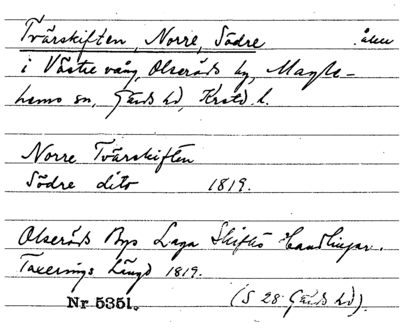 Tvärskiften, Norre, Södre åker
i Västre vång, Olseröds by, Magle-
hems sn, Gärds hd, Krstd. l.
Norre Tvärskiften
Södre dito 1819.
Olseröds Bys Laga Skiftes Handlingar.
Taxerings Längd 1819.
Nr 5351. (S 28 Gärds hd).